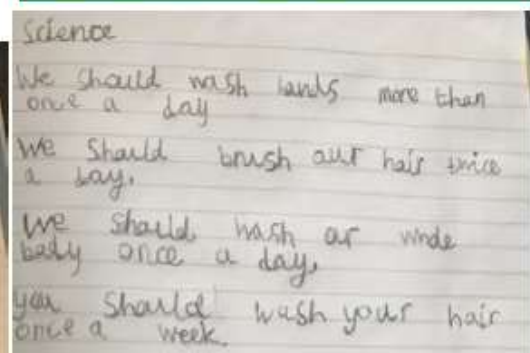 Science
We should wash hands more than
once a day
We should brush our hair twice
a day.
We should wash ar whole
body once a day.
you should wash your hair
once a week.